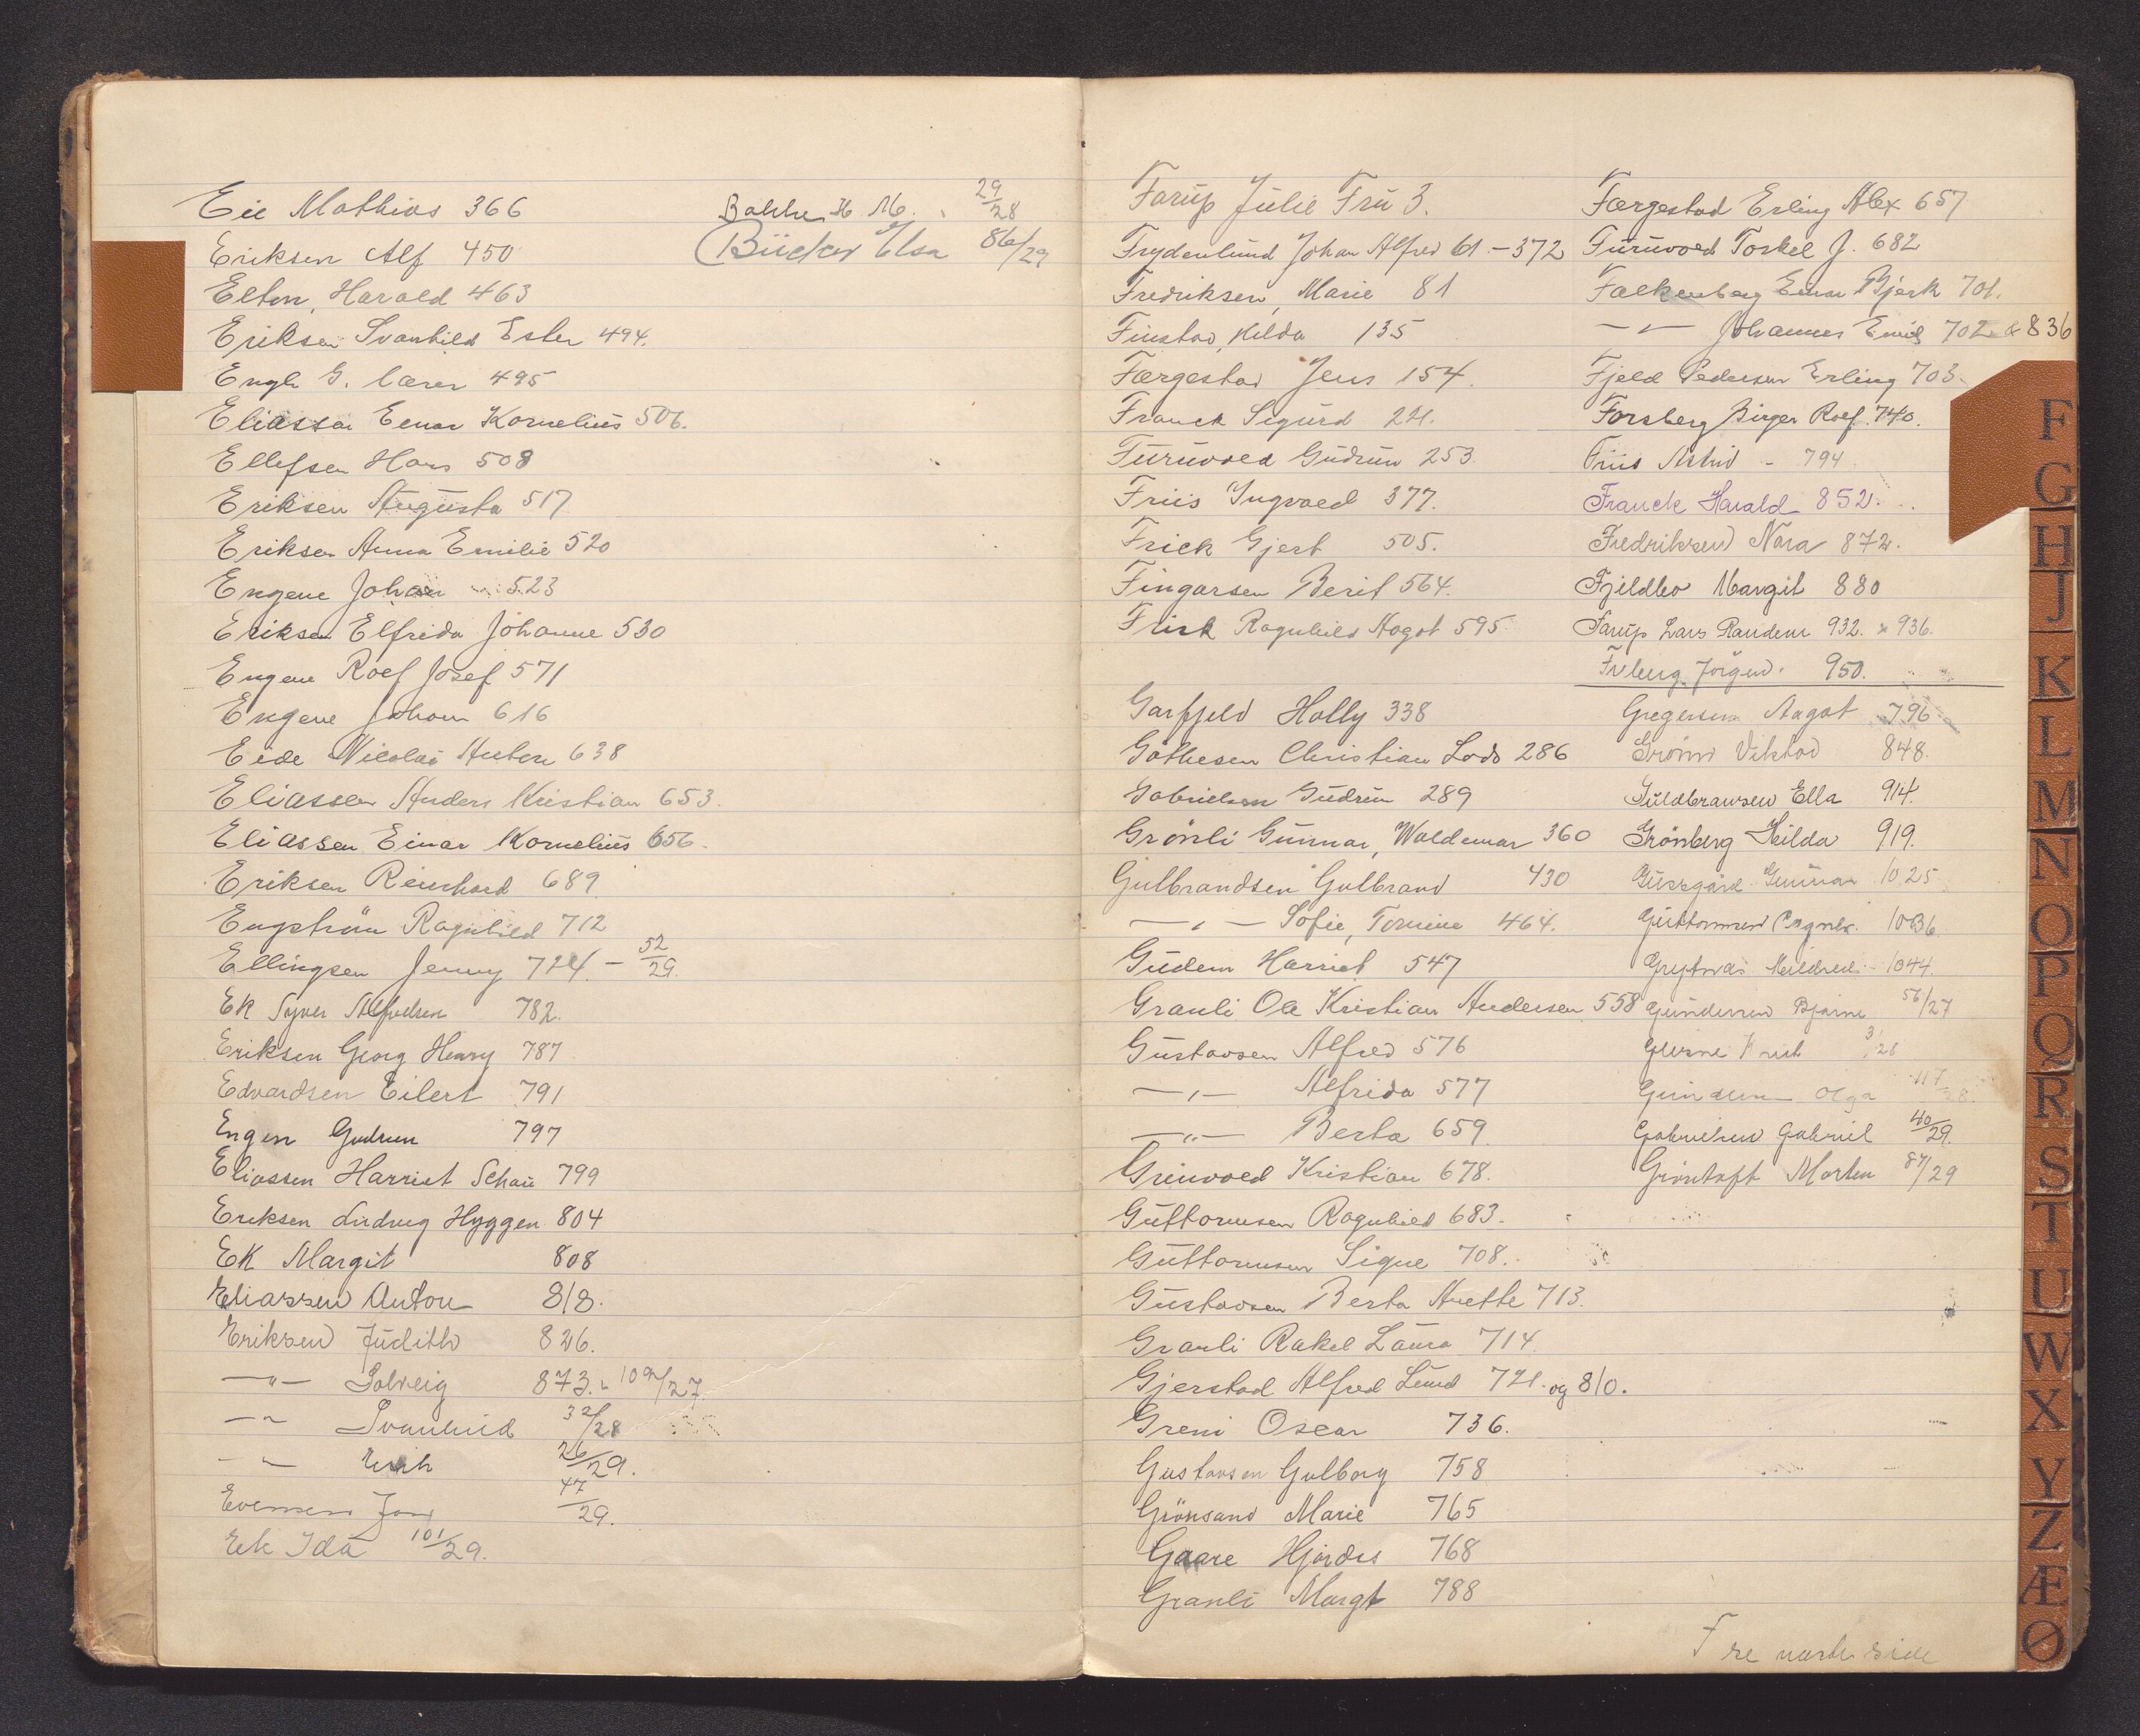 Eie Mathias 366
Eriksen Alf 450
Elton, Harald 463
Eriksen Svanhild Ester 494.
Engh G. lærer 495
Eliassen Einar Kornelius 506.
Ellefsen Hans 508
Eriksen Augusta 517
Eriksen Anna Emilie 520
Engene Johan 523
Eriksen Elfrida Johanne 530
Engene Rolf Josef 571
Engene Johan 616
Eide Nicolai Anton 638
Eliassen Anders Kristian 653.
Eliassen Einar Kornelius 656.
Eriksen Reinhard 689
Engström Ragnhild 712
Ellingsen Jenny 724. – 52/29.
Ek Syver Alfredsen 782.
Eriksen Georg Henry 787
Edvardsen Eilert 791
Engen Gudrun 797
Eliassen Harriet Schau 799
Eriksen Ludvig Hyggen 804
EK Margit 808
Eliassen Anton 818.
Eriksen Judith 826.
—"— Solveig 873. 109/27
—"— Svanhild 32/28
—"— Erik 26/29.
Evensen Jon 47/29.
Ek Ida 101/29.
M. 29/28
Bücker Elsa 86/29
Farup Julie Fru 3.
Frydenlund Johan Alfred 61 – 372
Fredriksen, Marie 81
Finstad, Hilda 135
Færgestad Jens 154.
Franck Sigurd 221.
Furuvold Gudrun 253.
Friis Ingvald 377.
Frick Gjert 505.
Fingarsen Berit 564.
Frisk Ragnhild Aagot 595
Garfjeld Holly 338
Gåthesen Christian Lods 286
Gabrielsen Gudrun 289
Grönli Gunnar, Waldemar 360
Gulbrandsen Gulbrand 430
—"— Sofie, Tomine 464.
Gudem Harriet 547
Granli Ole Kristian Andersen 558
Gustavsen Alfred 576
—"— Alfrida 577
—"— Berta 659.
Grinvold Kristian 678.
Guttormsen Ragnhild 683.
Guttormsen Signe 708.
Gustavsen Berta Anette 713.
Granli Rakel Laura 714.
Gjerstad Alfred Lund 721. og 810.
Greni Oscar 736.
Gustavsen Gulborg 758
Grönsand Marie 765
Gaare Hjördis 768
Granli Margt 788
Færgestad Erling Alex 657
Furuvold Torkel J. 682
Falkenberg Einar Bjerk 701.
—"— Johannes Emil 702 & 836
Fjeld Pedersen Erling 703.
Forsberg Birger Rolf. 740.
Friis Astrid – 794.
Franck Harald 852.
Fredriksen Nora 872.
Fjeldbo Margit 880
Farup Lars Randem 932. & 936.
Friberg Jörgen. 950.
Gregersen Aagot 796
Grönn Viktor 848.
Guldbransen Ella 914.
Grönberg Hilda 919.
Gunnar 1025
Guttormsen 1036.
Grytnes Mildred 1044.
Gundersen Bjarne 56/27
3/28
Gundersen Olga 117/28.
Gabrielsen Gabriel 40/29.
Gröntoft Morten 87/29
F se neste side
F
G
H
J
K
L
M
N
O
P
Q
R
S
T
U
W
X
Y
Z
Æ
Ø